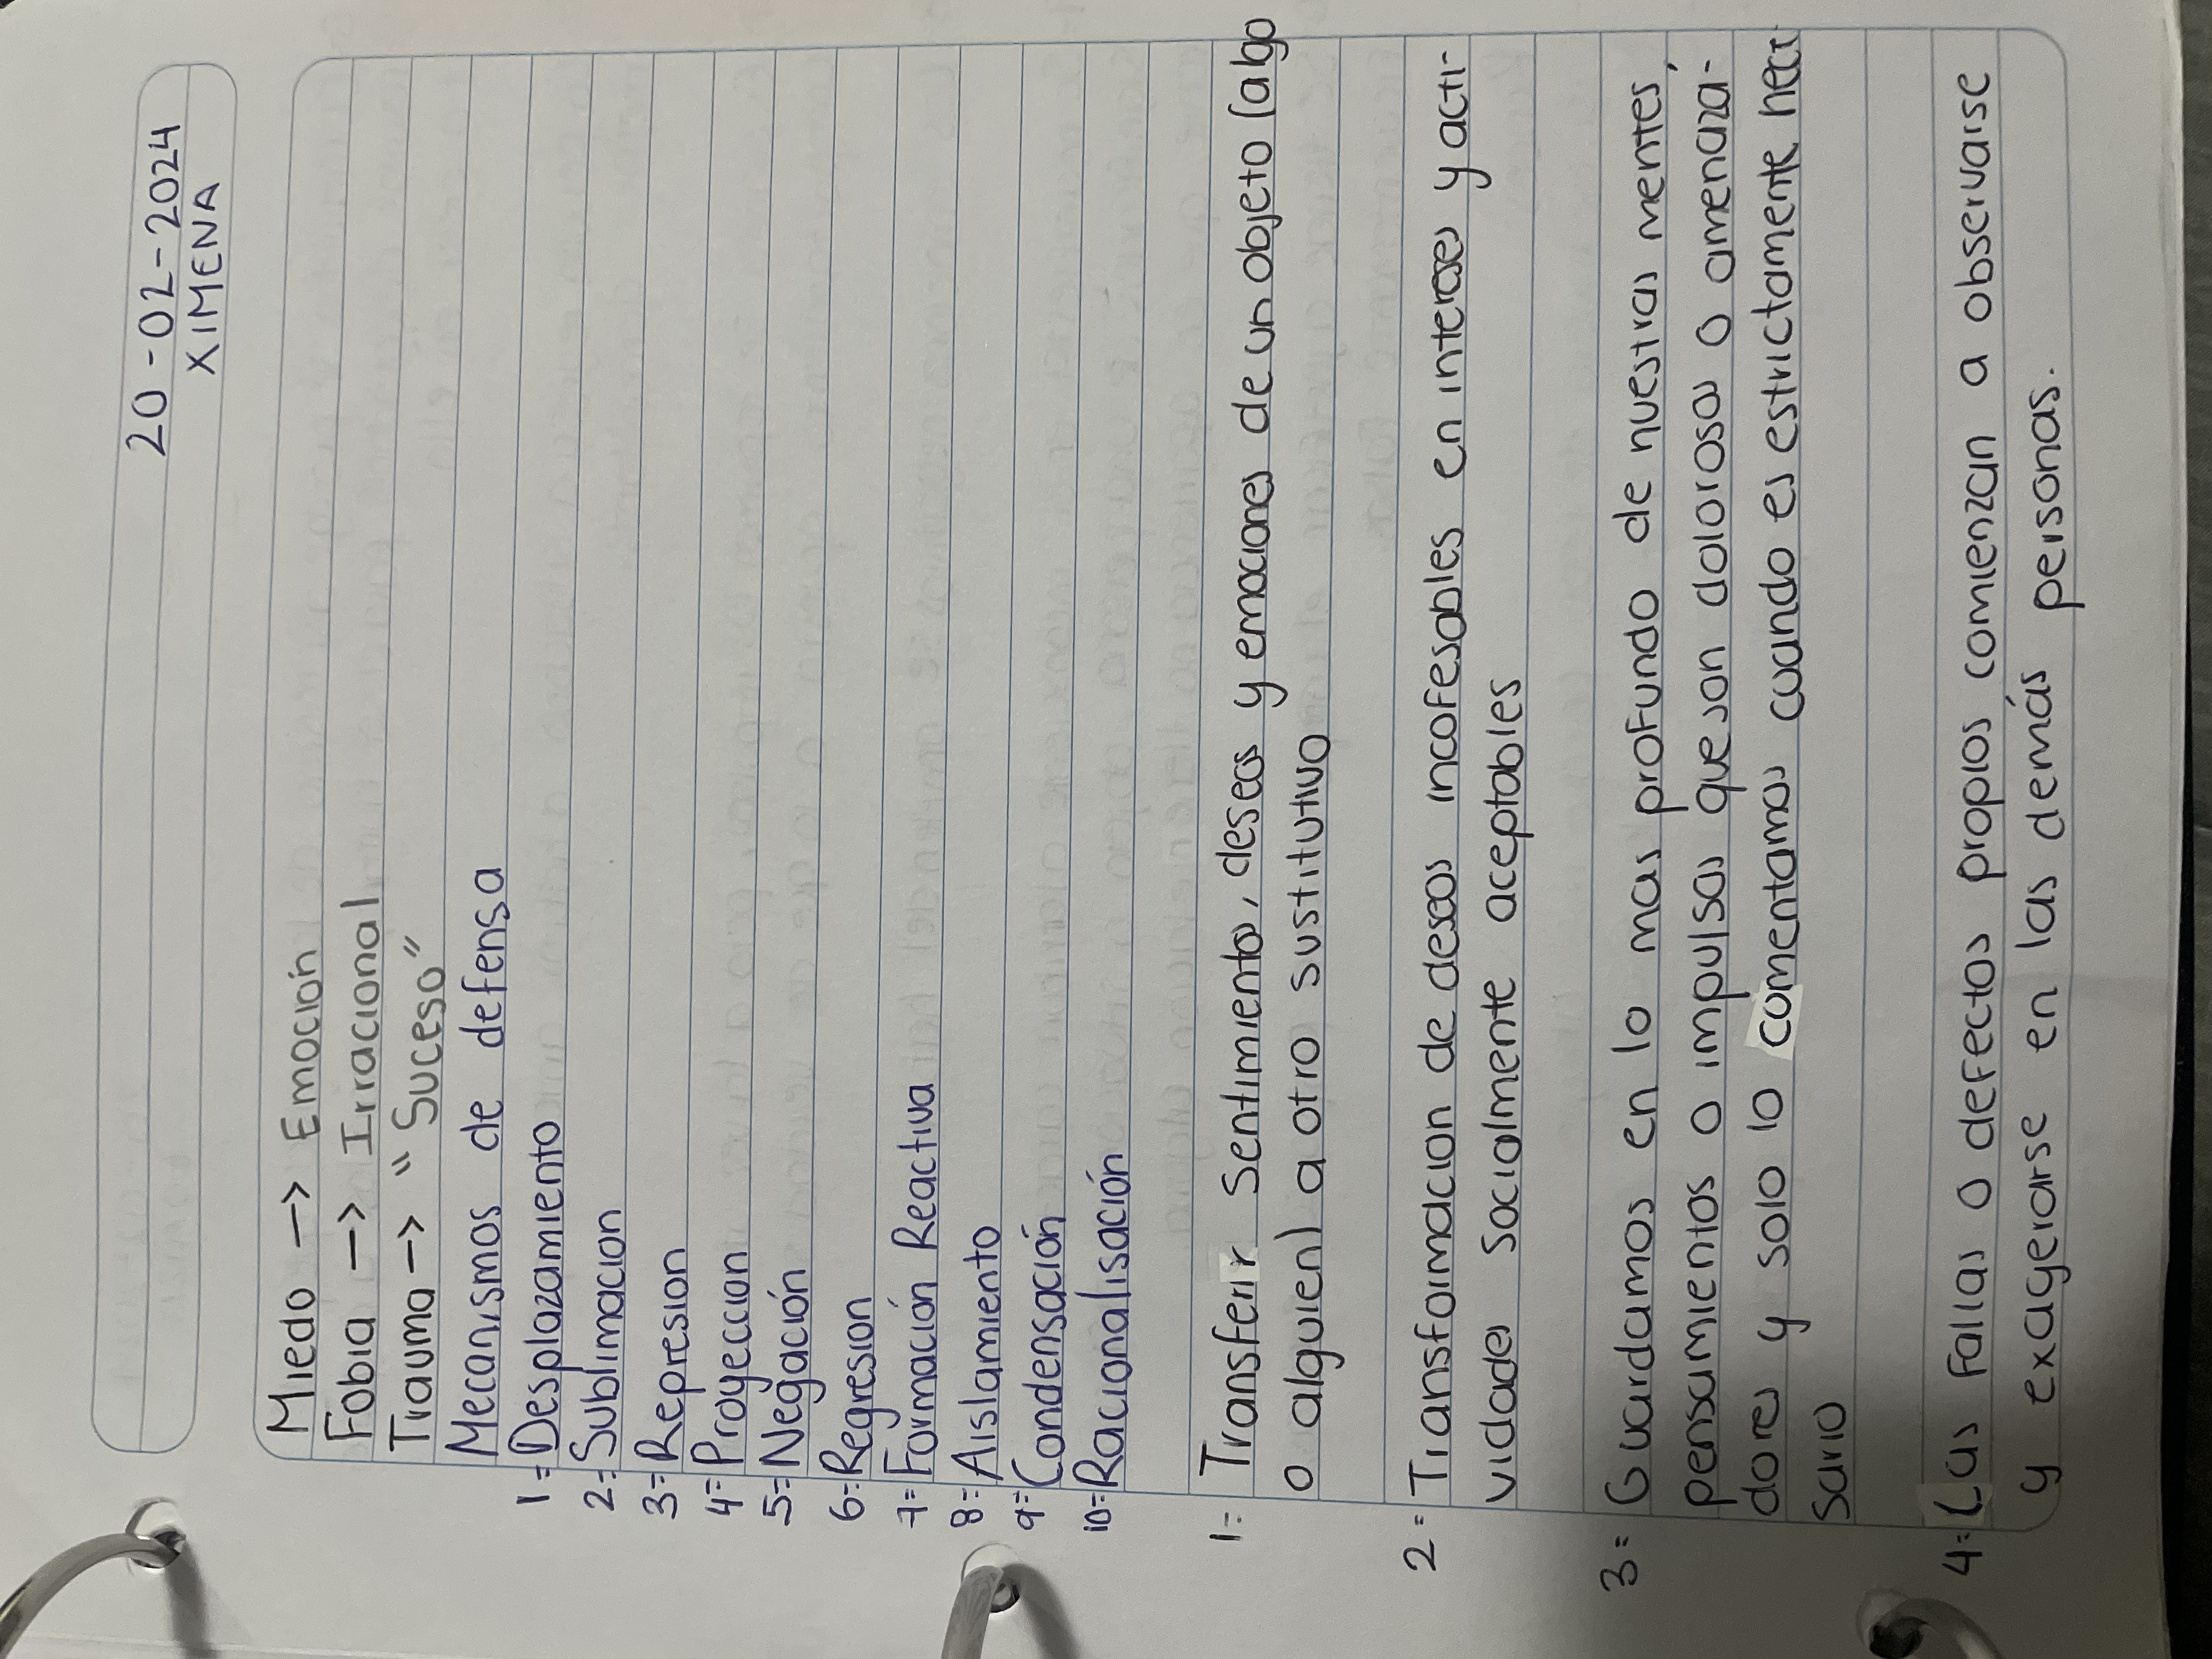 20-02-2024
XIMENA
Miedo -> Emoción
Fobia -> Irracional
Trauma -> "Suceso"
Mecanismos de defensa
1= Desplazamiento
2= Sublimacion
3= Represion
4= Proyeccion
5= Negación
6= Regresion
7= Formación Reactiva
8= Aislamiento
9= Condensación
10= Racionalisación
1= Transferir Sentimientos, deseos y emociones de un objeto (algo
o alguien) a otro sustitutivo
2= Transformacion de deseos incofesables en intereses y acti-
vidades socialmente aceptables
3= Guardamos en lo mas profundo de nuestras mentes,
pensamientos o impulsos que son dolorosos o amenaza-
dores y solo lo comentamos cuando es estrictamente nece
sario
4= Las Fallas o defectos propios comienzan a observarse
y exagerarse en las demás personas.